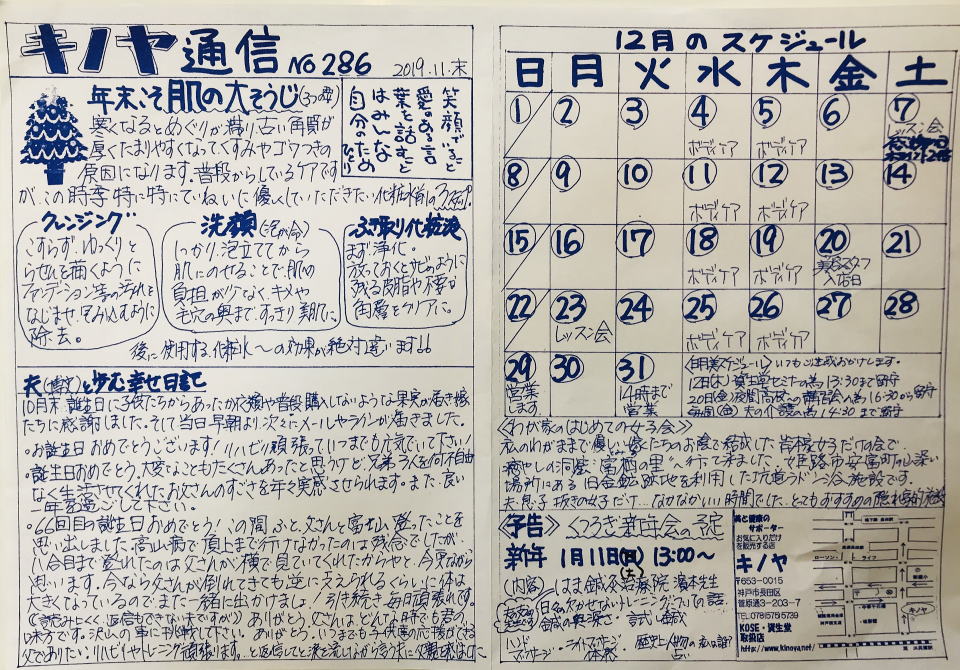 キノヤ通信 NO 286 2019.11.末
年末こそ肌の大そうじ(3つの型)
寒くなるとめぐりが滞り古い角質が
厚くたまりやすくなってくすみやゴワつきの
原因になります。普段からしているケアです
が、この時季特に特にていねいに優しくしていただきたい
笑顔でること
愛のある言
葉を話すこと
はみんな
自分のため
クレンジング
こすらず、ゆっくりと
らせんを描くように
ファンデーション等の汚れと
なじませ、包み込むように
除去。
洗顔(泡が命)
しっかり泡立ててから
肌にのせることで肌の
負担が少なく、キメや
毛穴の奥まですっきり美肌に
ふき取り化粧液
まず浄化。
放っておくとサビのように
残る皮脂や不要な
角層をクリアに。
後に使用する化粧水〜の効果が絶対違います!!
夫と歩む幸せ日記
10月末、誕生日に子供たちからあったか応援や普段購入しないような果実が届き嫁
たちに感謝しました。そして当日早朝より次々にメールやラインが届きました。
・お誕生日おめでとうございます!リハビリ頑張っていつまでも元気でいて下さい!
・誕生日おめでとう。大変なこともたくさんあったと思うけど兄弟3人を何不自由
なく生活させてくれたお父さんのすごさを年々実感させられます。また、良い
一年を過ごして下さい。
・66回目の誕生日おめでとう!この間ふと、父さんと富士山登ったことを
思い出しました。高山病で頂上まで行けなかったのは残念でしたが、
八合目まで登れたのは父さんが横で見ていてくれたからやと、今更ながら
思います。今なら父さんが倒れてきても逆に支えられるくらいに体は
大きくなっているのでまた一緒に出かけましょ!引き続き毎日頑張れです。
ありがとう。父さんはどんな時でも君の
味方です。沢山の事に挑戦して下さい。
12月のスケジュール
日 月 火 水 木 金 土
1 2 3 4 5 6 7
ボディケア ボディケア レッスン会
8 9 10 11 12 13 14
ボディケア ボディケア
15 16 17 18 19 20 21
ボディケア ボディケア 美容スタッフ
入店日
22 23 24 25 26 27 28
レッスン会 ボディケア ボディケア
29 30 31
営業
します
14時まで
営業
いつもご迷惑おかけします。
12日(木)資生堂セミナーの為 13:30まで留守
20日(金)夜間高校への講習会の為 16:30から留守
毎週(金)夫の介護の為 14:30まで留守
<わが家のはじめての女子会>
私のわがままで優しい嫁たちのお陰で結成した皆様女子だけの会で、
癒やしの洞窟"富栖の里"へ行って来ました。姫路市安富町の山深い
場所にある旧金鉱跡地を利用した坑道ラドン浴施設です。
夫、息子抜きの女子だけ…なかなかいい時間でした。とてもおすすめの隠れ家的施設
<予告> くつろぎ新年会の予定
新年 1月11日(土) 13:00〜
(内容) はま鍼灸治療院 濱本先生
日々欠かせないトレーニングについての話
鍼の奥深さ・試し鍼
ハンド
マッサージ・ライトストーン
体験
美と健康の
サポーター
お気に入りだけ
を販売する店
キノヤ
〒653-0015
神戸市長田区
菅原通3-203-7
TEL:078(575)5739
KOSE・資生堂
取扱店
http://www.kinoya.net/
ローソン
ライフ
キノヤ